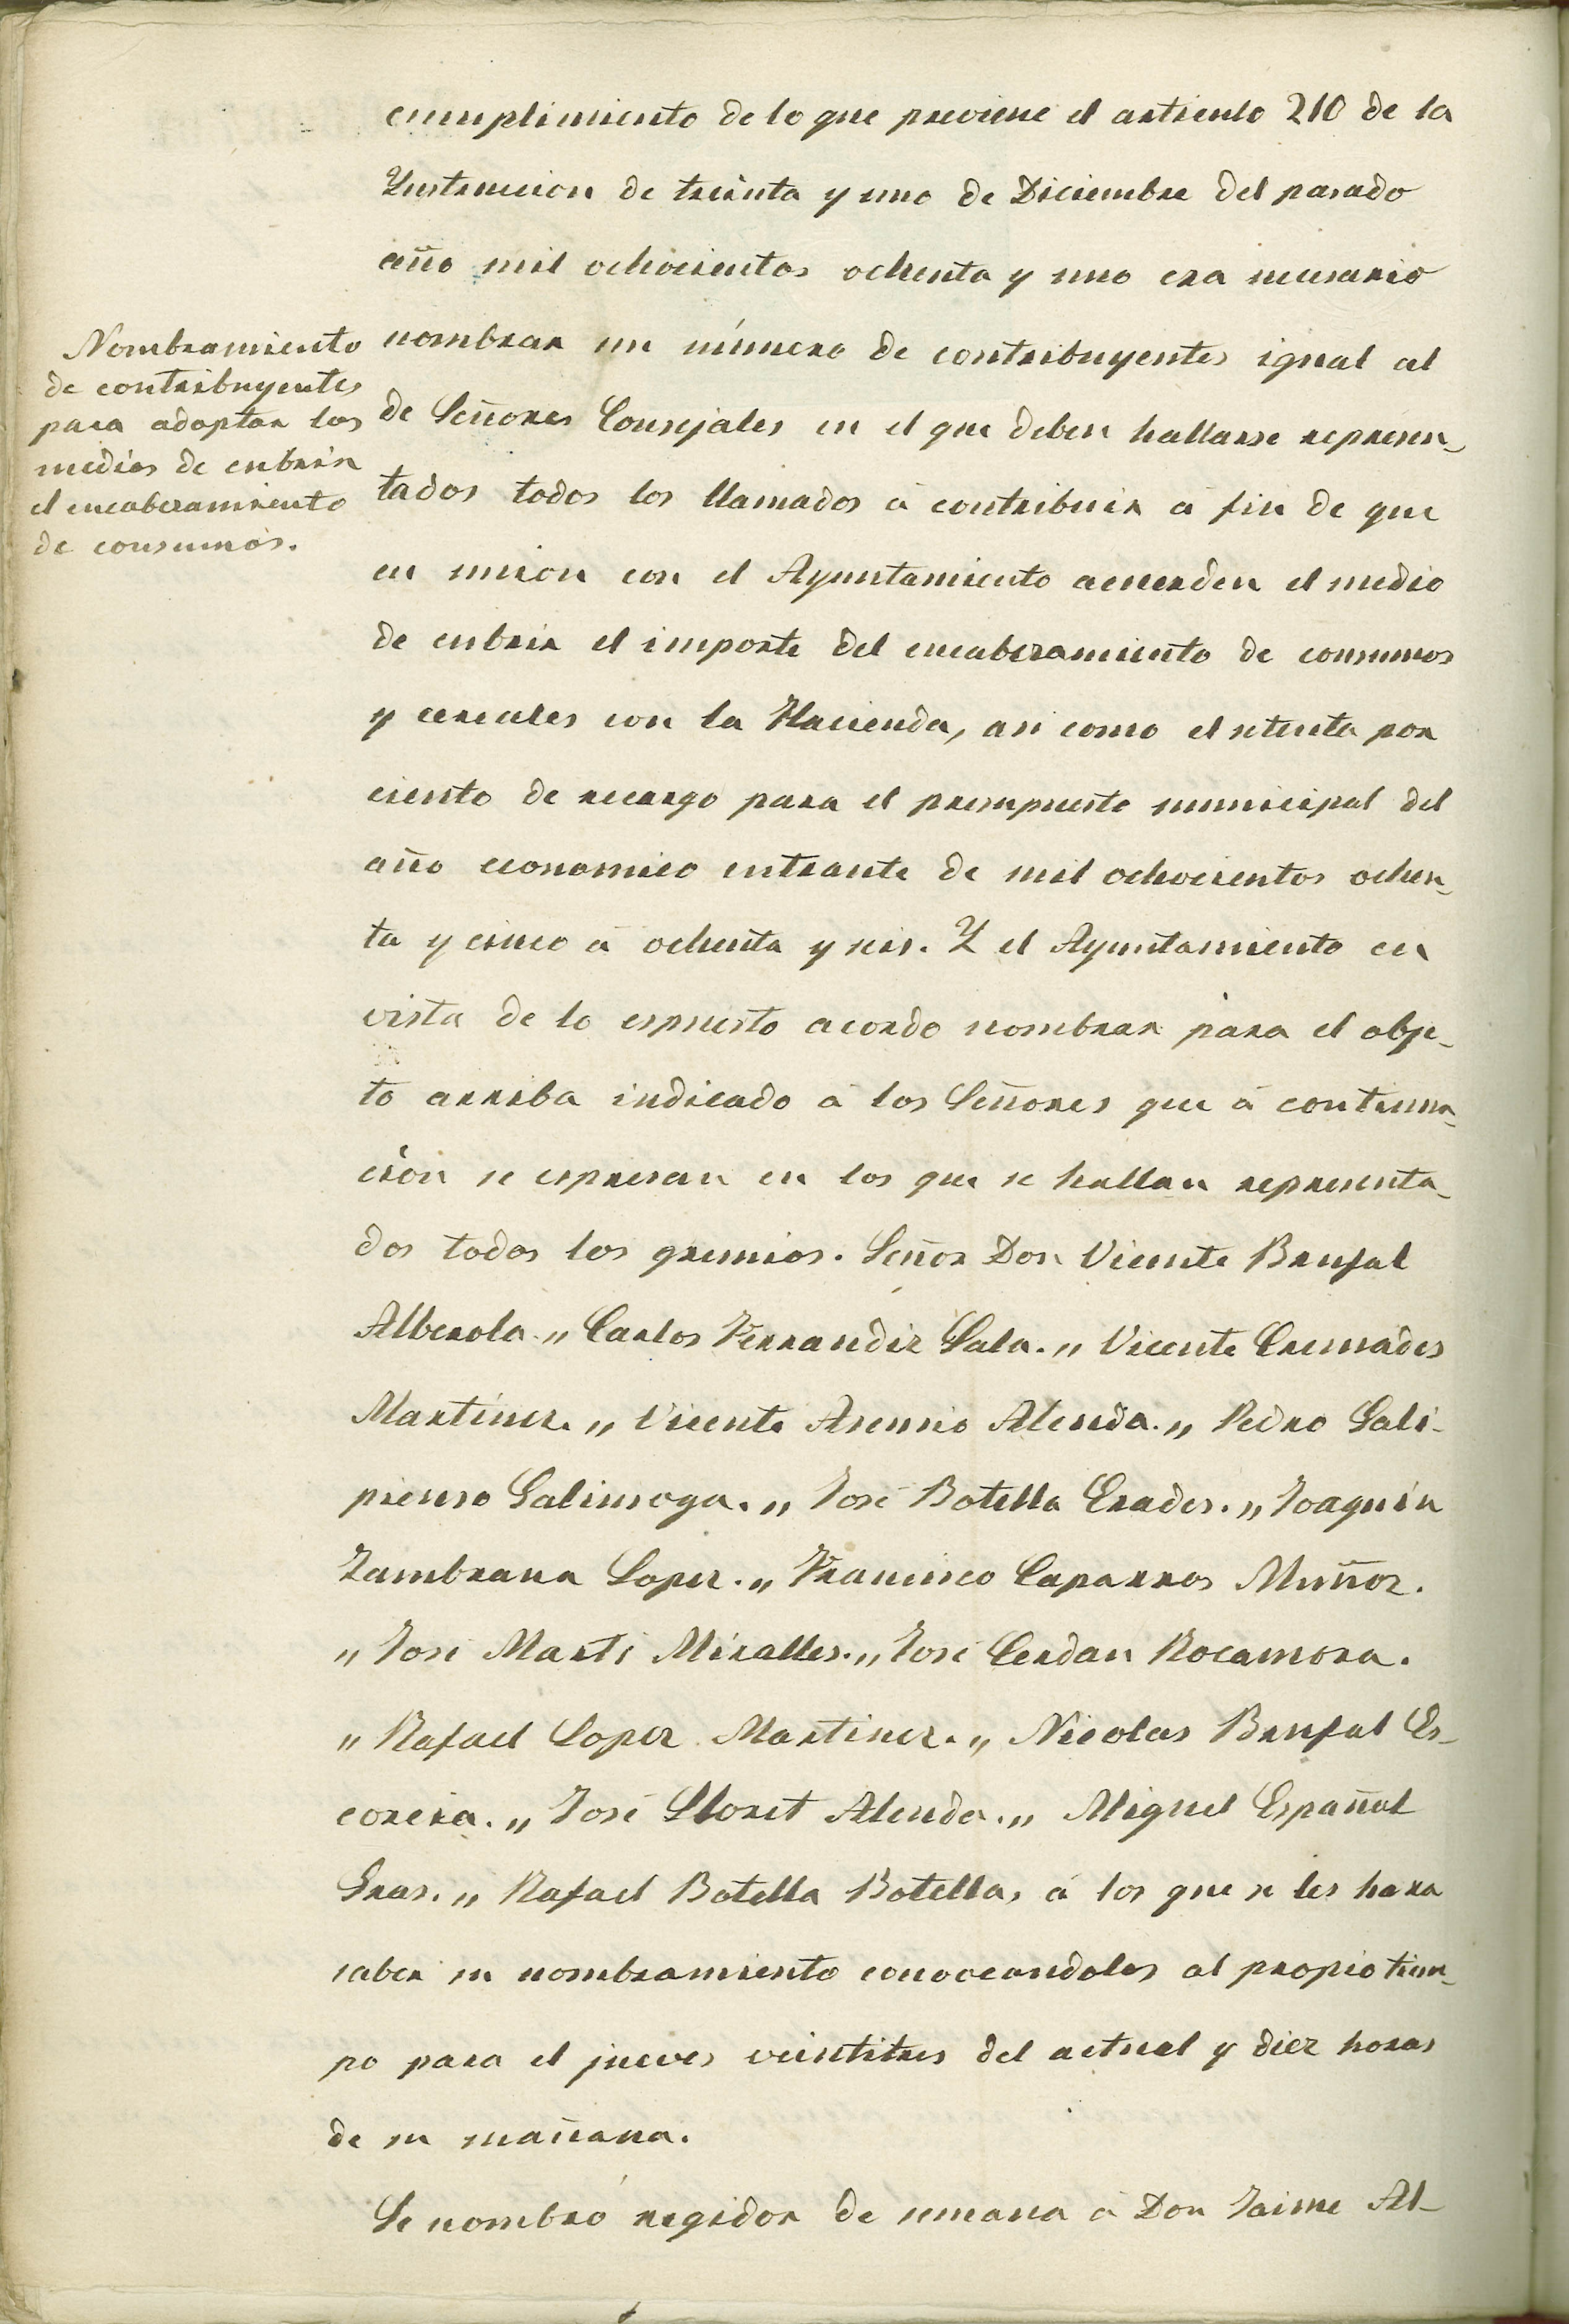 cumplimiento de lo que previene el articulo 210 de la
Ynstruccion de treinta y uno de Diciembre del pasado
año mil ochocientos ochenta y uno era necesario
nombrar un número de contribuyentes igual al
de Señores Consejales en el que deben hallarse represen-
tados todos los llamados á contribuir á fin de que
en union con el Ayuntamiento acuerden el medio
de cubrir el importe del encabezamiento de consumos
y cereales con la Hacienda, asi como el setenta por
ciento de recargo para el presupuesto municipal del
año economico entrante de mil ochocientos ochen-
ta y cinco á ochenta y seis. Y el Ayuntamiento en
vista de lo espuesto acordo nombrar para el obje-
to arriba indicado á los Señores que á continua-
ción se espresan en los que se hallan representa-
dos todos los gremios. Señor Don Vicente Brufal
Alberola. „ Carlos Ferrandiz Sala. „ Vicente Cremades
Martinez. „ Vicente Asencio Alenda. „ Pedro Gali-
pienso Galinsoga. „ José Botella Erades. „ Joaquin
Zambrana Lopez. „ Francisco Caparros Muñoz.
„ José Marti Miralles. „ José Cerdan Rocamora.
„ Rafael Lopez Martinez. „ Nicolas Brufal Es-
corcia. „ José Lloret Alenda. „ Miguel Español
Gras. „ Rafael Botella Botella, á los que se les hara
saber su nombramiento convocandoles al propio tiem-
po para el jueves veintitres del actual y diez horas
de su mañana.
Se nombró regidor de semana á Don Jaime Al-
Nombramiento
de contribuyentes
para adoptar los
medios de cubrir
el encabezamiento
de consumos.